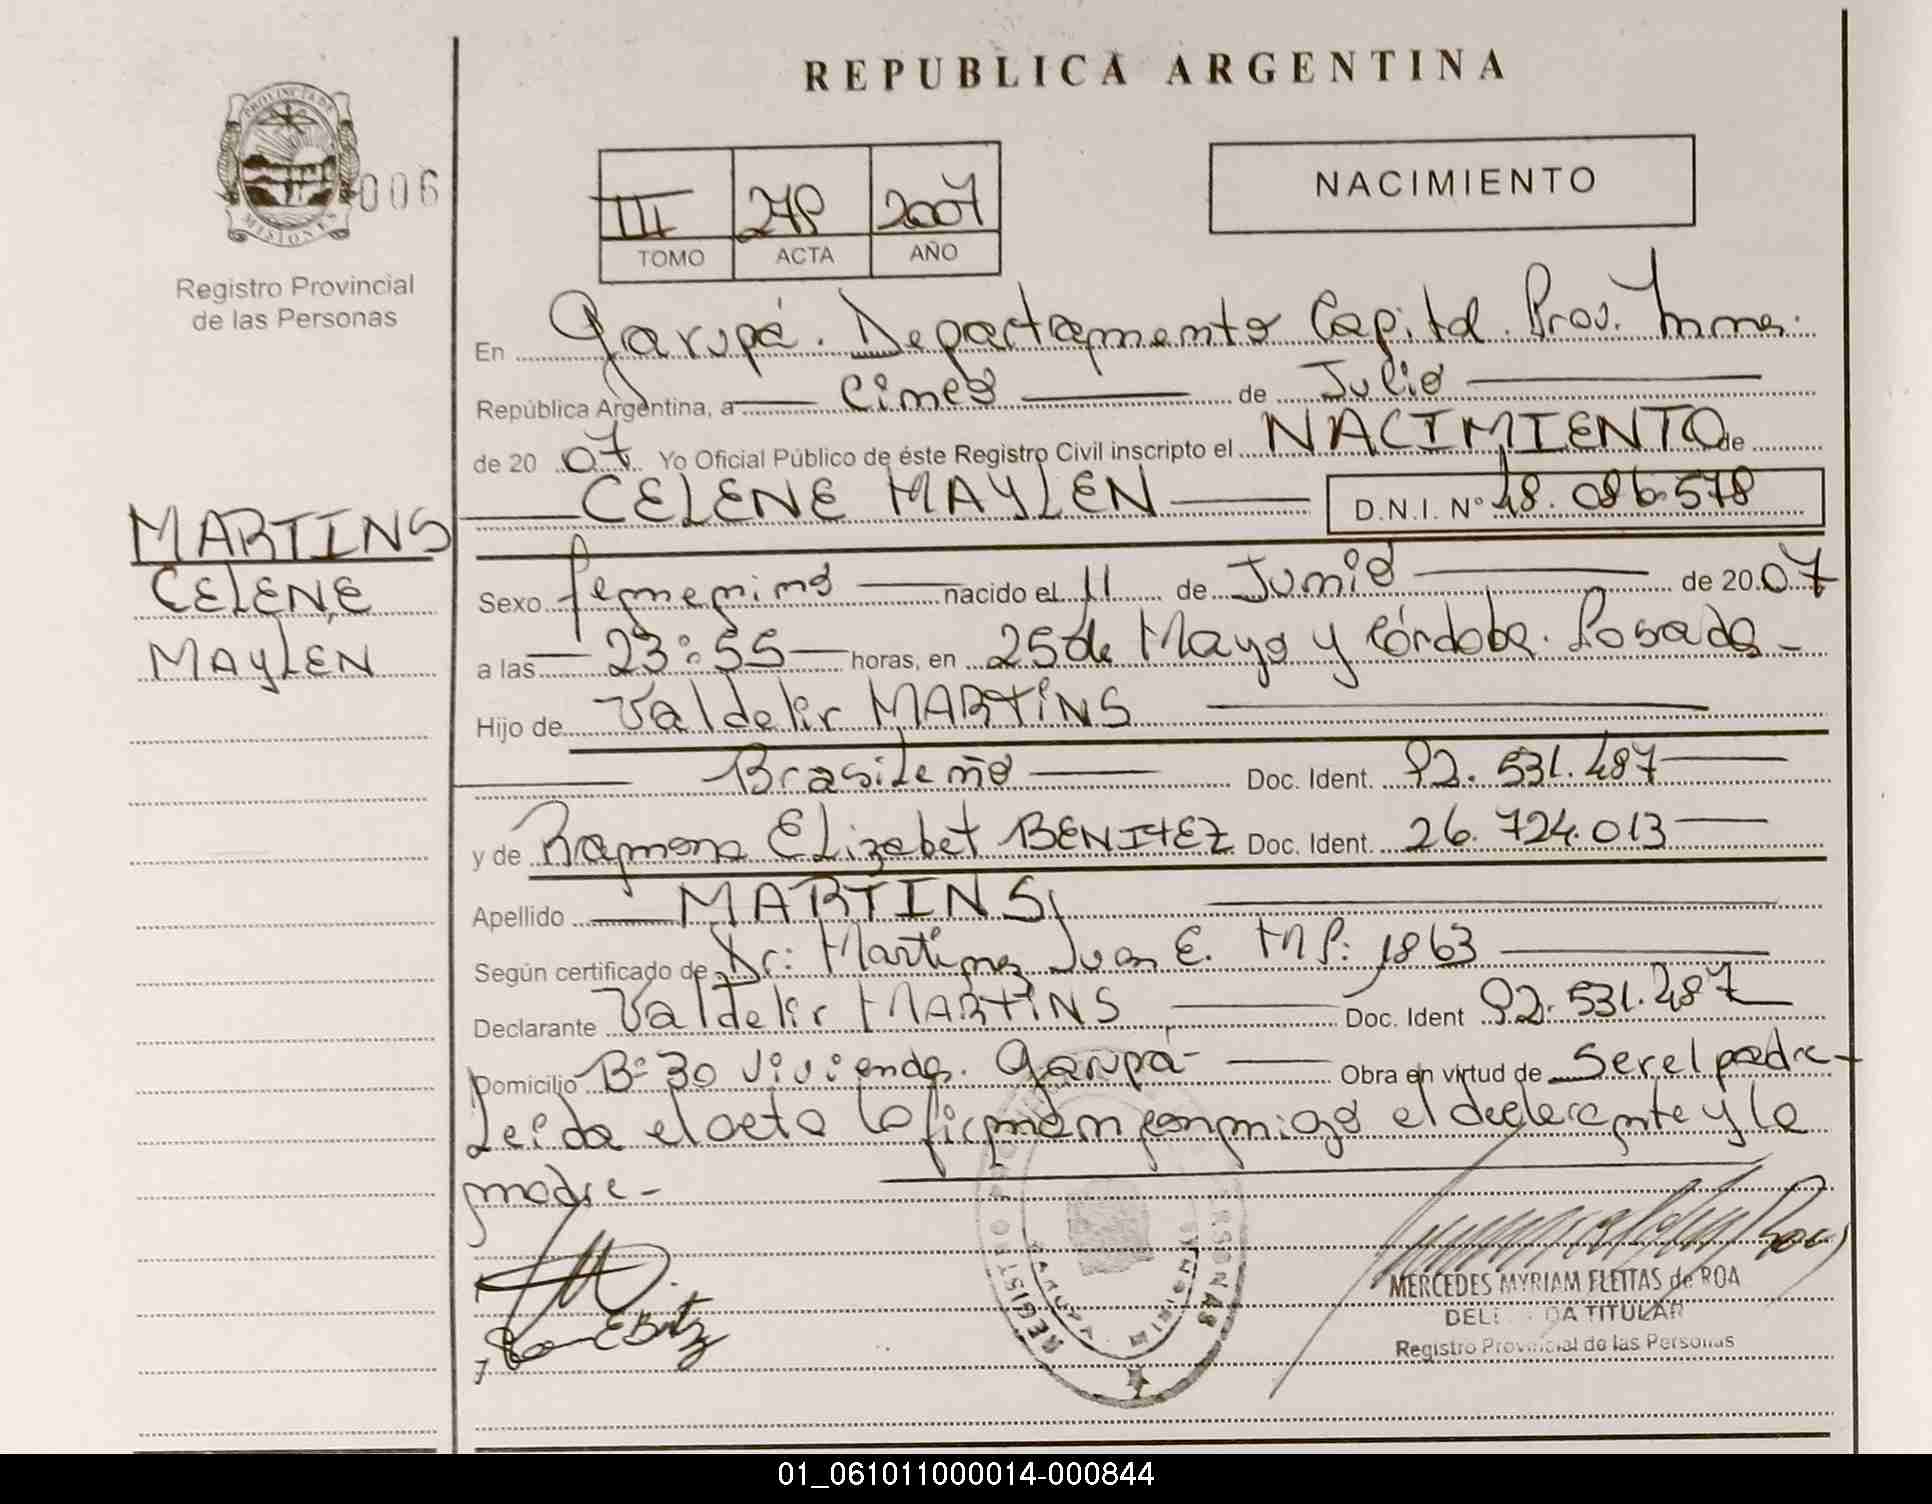 REPUBLICA ARGENTINA
PROVINCIA DE
MISIONES
006
Registro Provincial
de las Personas
III 278 2007
TOMO ACTA AÑO
NACIMIENTO
En Garupá. Departamento Capital. Prov.
República Argentina, a cinco de Julio
de 2007 Yo Oficial Público de éste Registro Civil inscripto el NACIMIENTO de
CELENE MAYLEN D.N.I. Nº 48.086.578
MARTINS
CELENE
MAYLEN
Sexo femenino nacido el 11 de Junio de 2007
a las 23:55 horas, en 25 de Mayo y Córdoba. Posadas-
Hijo de Valdelir MARTINS
Brasileño Doc. Ident. 92.531.487
y de Ramona Elizabet BENITEZ Doc. Ident. 26.724.013
Apellido MARTINS
Según certificado de Dr: Martinez Juan E. MP: 1863
Declarante Valdelir MARTINS Doc. Ident 92.531.487
Domicilio Bº 30 Viviendas. Garupá- Obra en virtud de Ser el padre-
Leida el acta la firman conmigo el declarante y la
madre-
MERCEDES MYRIAM FLEITAS de ROA
TITULAR
Registro Provincial de las Personas
REGISTRO PERSONAS
GARUPA MISIONES
01_061011000014-000844